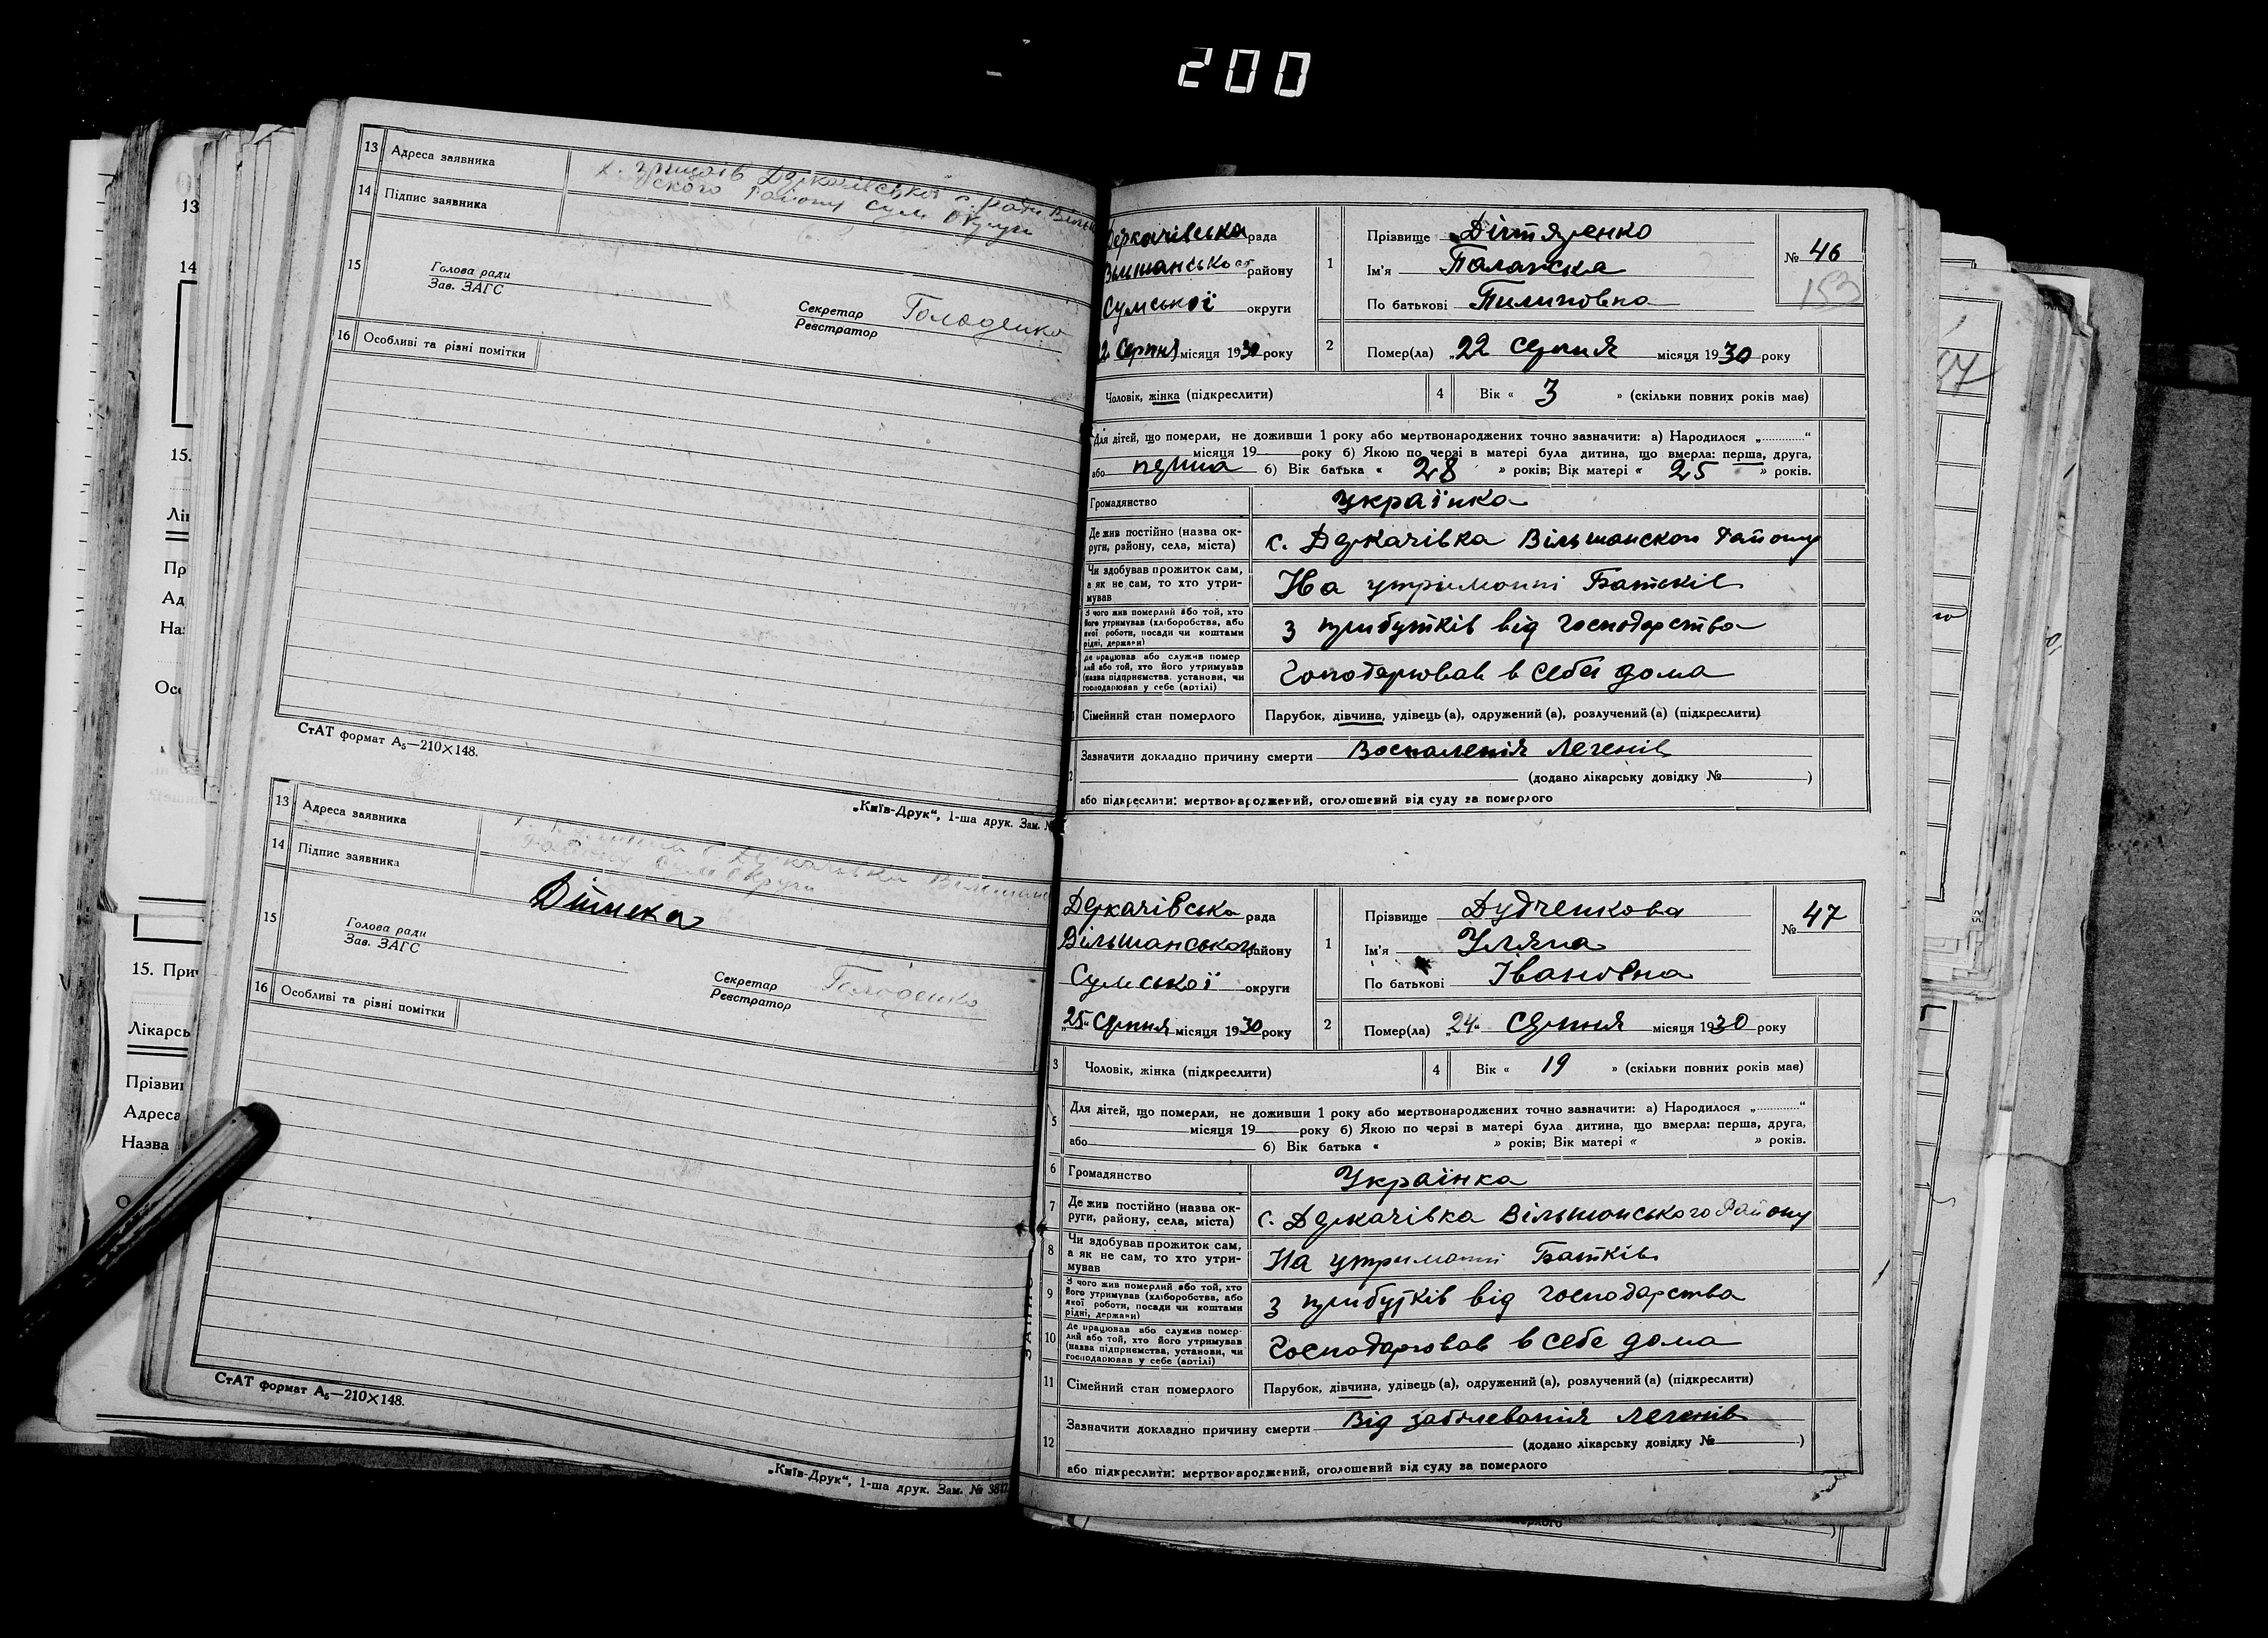 200
13 Адреса заявника х. Грицаїв Деркачівської с. ради Вільшан
ського району Сум округи
14 Підпис заявника
15 Голова ради
Зав. ЗАГС
Секретар Голоденко
Реєстратор
16 Особливі та різні помітки
СтАТ формат А₅—210×148.
„Київ-Друк“, 1-ша друк. Зам. №
13 Адреса заявника с. Деркачівка Вільшан
району Сум округи
14 Підпис заявника
Дітшека
15 Голова ради
Зав. ЗАГС
Секретар Голоденко
Реєстратор
16 Особливі та різні помітки
СтАТ формат А₅—210×148.
„Київ-Друк“, 1-ша друк. Зам. №
Деркачівська рада
Вільшанського району
Сумської округи
Серпня місяця 1930 року
1 Прізвище Дігтяренко
Ім'я Палажка
По батькові Пилиповна
№ 46
153
2 Помер(ла) „22 Серпня місяця 1930 року
Чоловік, жінка (підкреслити)
4 Вік « 3 » (скільки повних років має)
Для дітей, що померли, не доживши 1 року або мертвонароджених точно зазначити: а) Народилося „............“
місяця 19 року б) Якою по черзі в матері була дитина, що вмерла: перша, друга,
або перша 6) Вік батька « 28 » років; Вік матері « 25 » років.
Громадянство Українка
Де жив постійно (назва ок-
руги, району, села, міста) с. Деркачівка Вільшанскои Району
Чи здобував прожиток сам,
а як не сам, то хто утри-
мував На утриманні Батьків
З чого жив померлий або той, хто
його утримував (хліборобства, або
якої роботи, посади чи коштами
рідні, держави) з прибутків від господарства
Де працював або служив помер-
лий або той, хто його утримував
(назва підприємства, установи, чи
господарював у себе (артілі) Господарював в себе дома
Сімейний стан померлого Парубок, дівчина, удівець (а), одружений (а), розлучений (а) (підкреслити)
Зазначити докладно причину смерти Воспаления Легенів
(додано лікарську довідку № )
або підкреслити: мертвонароджений, оголошений від суду за померлого
Деркачівська рада
Вільшанськои району
Сумської округи
„25“ Серпня місяця 1930 року
1 Прізвище Дудченкова
Ім'я Уляна
По батькові Івановна
№ 47
2 Помер(ла) „24“ Серпня місяця 1930 року
3 Чоловік, жінка (підкреслити)
4 Вік « 19 » (скільки повних років має)
5 Для дітей, що померли, не доживши 1 року або мертвонароджених точно зазначити: а) Народилося „............“
місяця 19 року б) Якою по черзі в матері була дитина, що вмерла: перша, друга,
або 6) Вік батька « » років; Вік матері « » років.
6 Громадянство Українка
7 Де жив постійно (назва ок-
руги, району, села, міста) с. Деркачівка Вільшонського Району
8 Чи здобував прожиток сам,
а як не сам, то хто утри-
мував На утриманні Батків
9 З чого жив померлий або той, хто
його утримував (хліборобства, або
якої роботи, посади чи коштами
рідні, держави) з прибутків від господарства
10 Де працював або служив помер-
лий або той, хто його утримував
(назва підприємства, установи, чи
господарював у себе (артілі) Господарював в себе дома
11 Сімейний стан померлого Парубок, дівчина, удівець (а), одружений (а), розлучений (а) (підкреслити)
12 Зазначити докладно причину смерти Від заболевания легенів
(додано лікарську довідку № )
або підкреслити: мертвонароджений, оголошений від суду за померлого